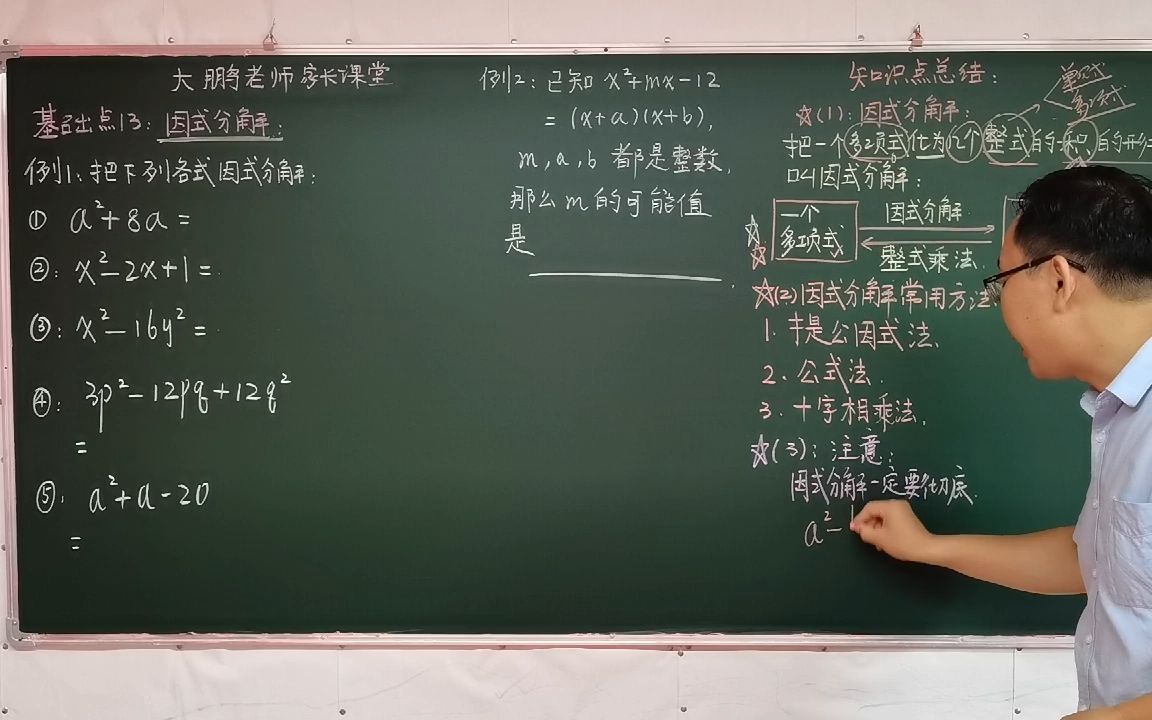 大鹏老师家长课堂
基础点13：因式分解：
例1：把下列各式因式分解：
① a²+8a=
②：x²-2x+1=
③：x²-16y²=
④：3p²-12pq+12q²
=
⑤：a²+a-20
=
例2：已知 x²+mx-12
=(x+a)(x+b),
m,a,b 都是整数,
那么m的可能值
是
知识点总结：
☆(1)：因式分解：
单项式
多项式
把一个多项式化为几个整式的积的形
叫因式分解：
一个
多项式
因式分解
整式乘法
☆(2)因式分解常用方法
1.提公因式法.
2.公式法.
3.十字相乘法.
☆(3)：注意：
因式分解一定要彻底.
a²-